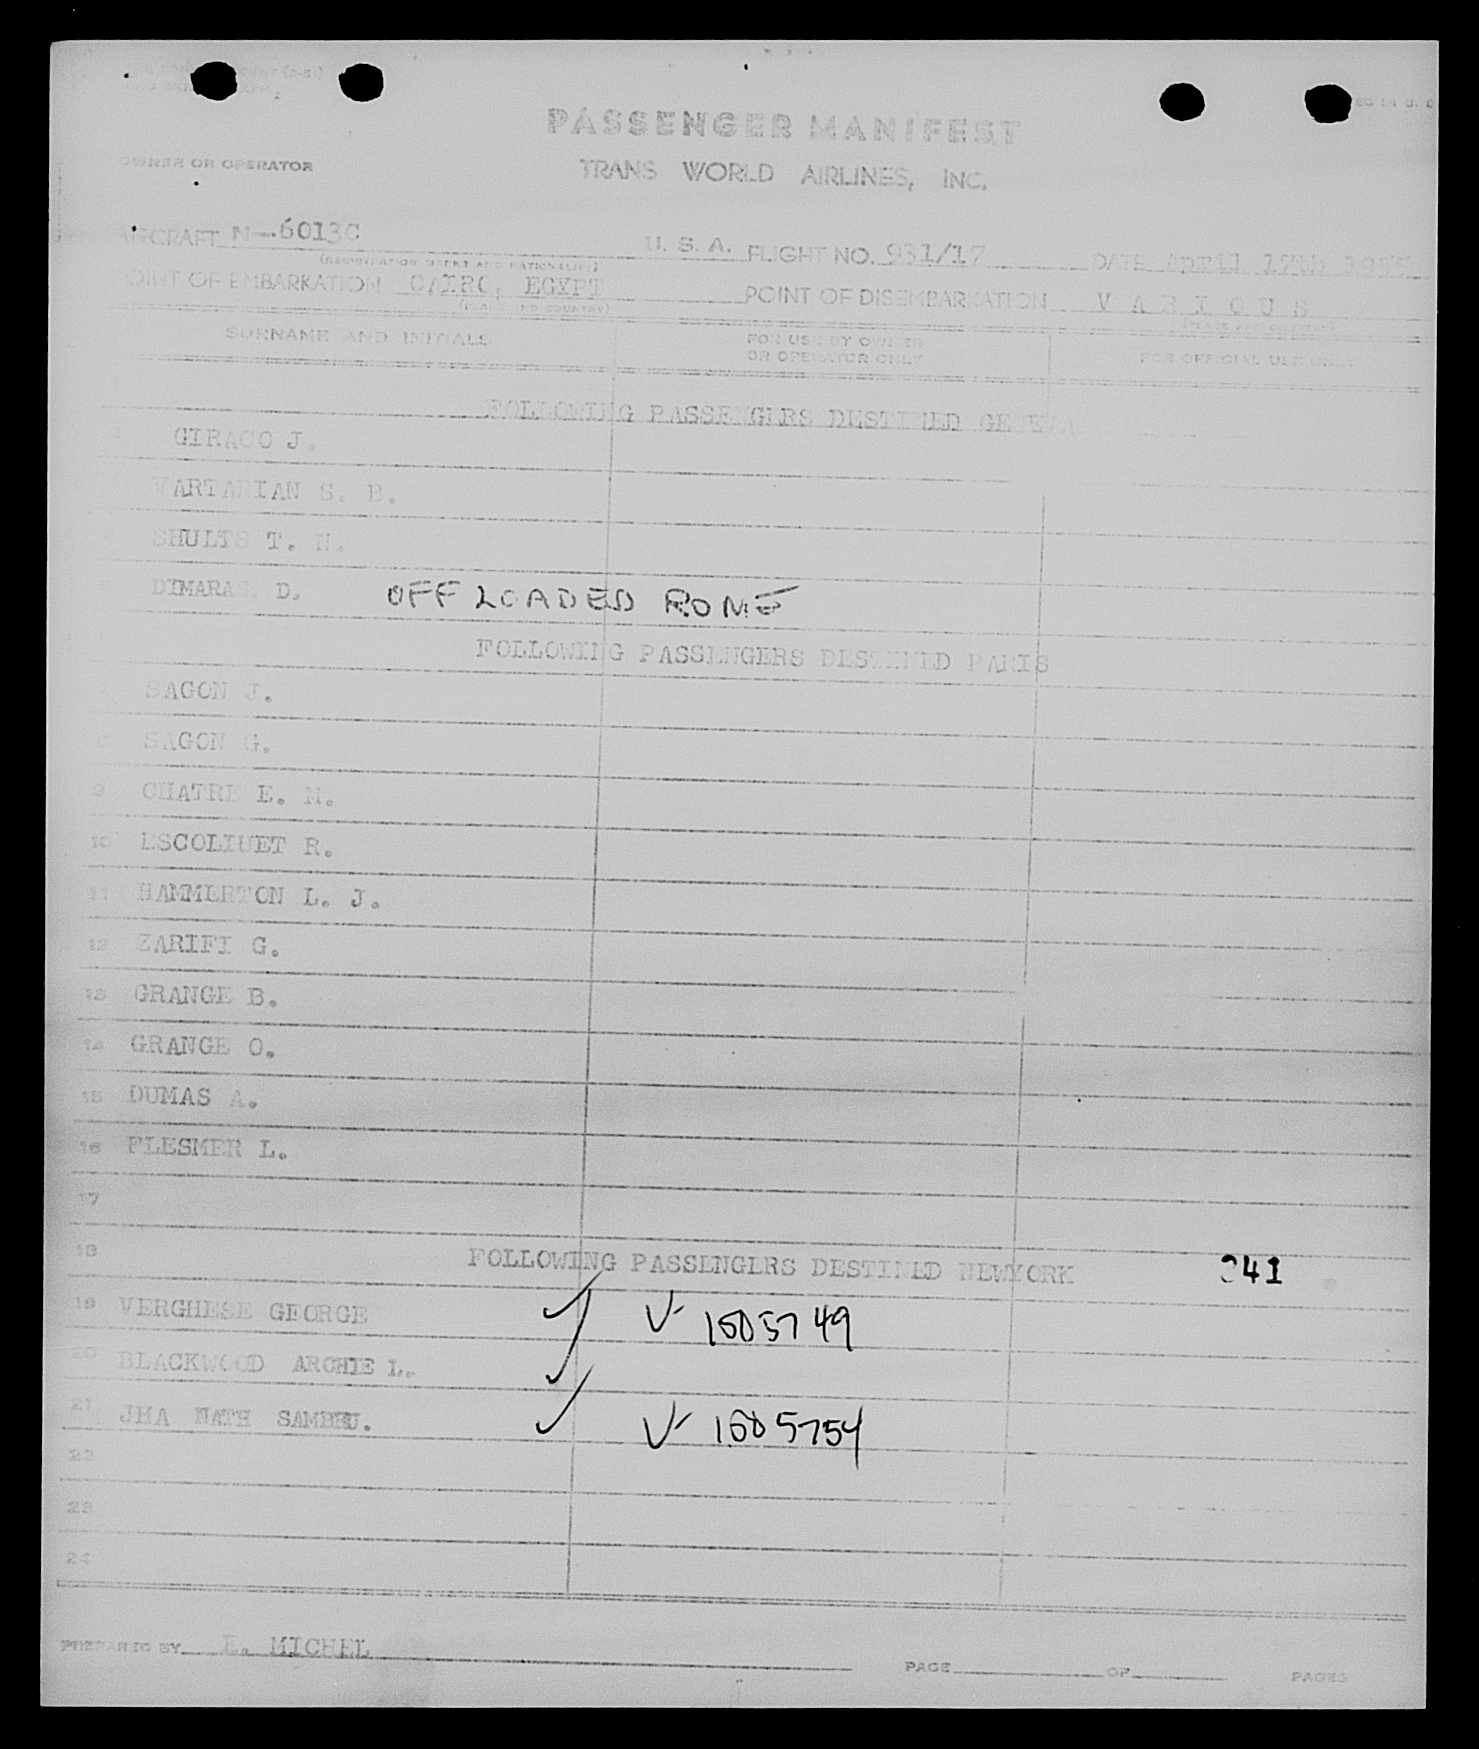 PASSENGER MANIFEST
OWNER OR OPERATOR
TRANS WORLD AIRLINES, INC.
AIRCRAFT N-6013C U. S. A. FLIGHT NO. 931/17 DATE APRIL 17TH
(REGISTRATION MARKS AND NATIONALITY)
POINT OF EMBARKATION CAIRO, EGYPT POINT OF DISEMBARKATION V A R I O U S
(PLACE AND COUNTRY) (PLACE AND COUNTRY)
SURNAME AND INITIALS FOR USE BY OWNER OR OPERATOR ONLY FOR OFFICIAL USE ONLY
FOLLOWING PASSENGERS DESTINED GENEVA
GIRACO J.
VARTANIAN S. B.
SHULTS T. N.
DIMARAS. D. OFF LOADED ROME
FOLLOWING PASSENGERS DESTINED PARIS
SAGON J.
8 SAGON G.
9 CHATRE E. M.
10 ESCOLIUET R.
11 HAMMERTON L. J.
12 ZARIFI G.
13 GRANGE B.
14 GRANGE O.
15 DUMAS A.
16 FLESMER L.
17
18 FOLLOWING PASSENGERS DESTINED NEWYORK 341
19 VERGHESE GEORGE V- 1505749
20 BLACKWOOD ARCHIE L.
21 JHA NATH SAMBHU. V- 1505754
22
23
24
PREPARED BY E. MICHEL
PAGE OF PAGES